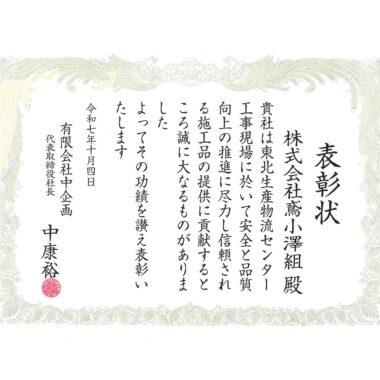 表彰状
株式会社鳶小澤組 殿
貴社は東北生産物流センター
工事現場に於いて安全と品質
向上の推進に尽力し信頼され
る施工品の提供に貢献すると
ころ誠に大なるものがありま
した
よってその功績を讃え表彰い
たします
令和七年十月四日
有限会社中企画
代表取締役社長
中康裕